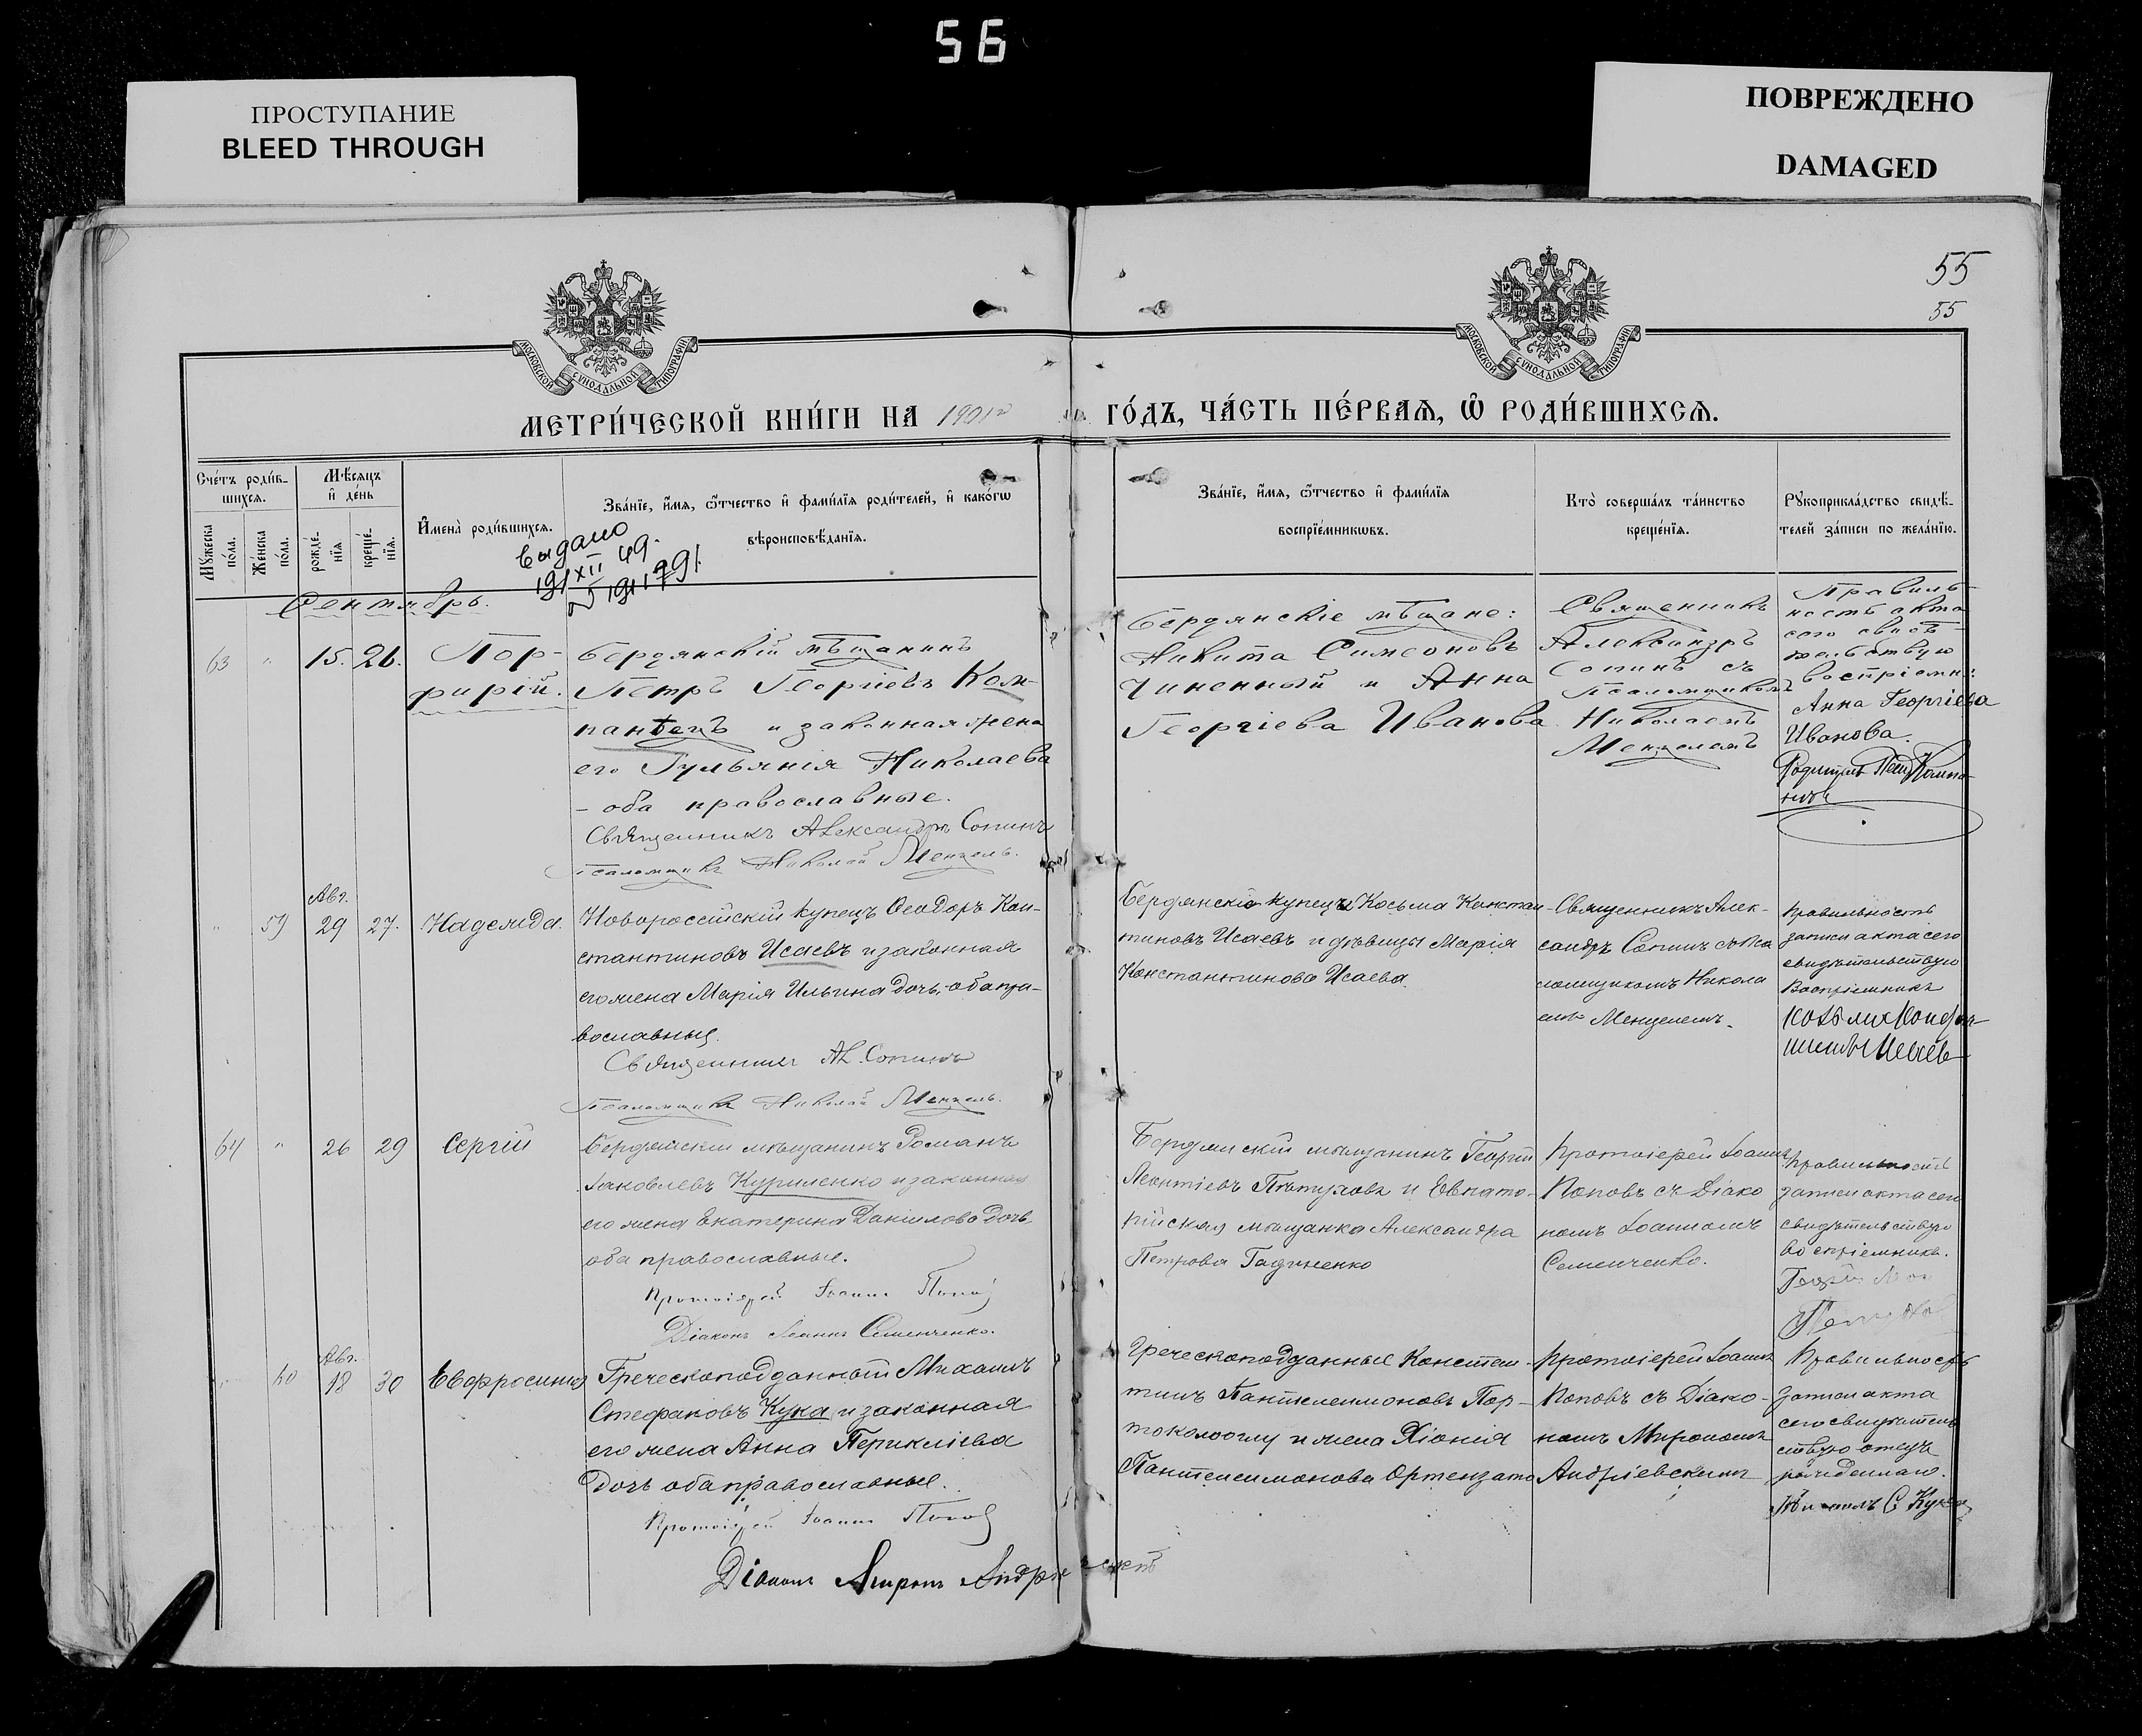 56
ПРОСТУПАНИЕ
BLEED THROUGH
ПОВРЕЖДЕНО
DAMAGED
55
55
МОСКОВСКОЙ СѴНОДАЛЬНОЙ ТИПОГРАФІИ
МОСКОВСКОЙ СѴНОДАЛЬНОЙ ТИПОГРАФІИ
МЕТРИ́ЧЕСКОЙ КНИ́ГИ НА 1901 ГО́ДЪ, ЧА́СТЬ ПЕ́РВАѦ, Ѡ҆ РОДИ́ВШИХСѦ.
Сче́тъ роди́в-
шихсѧ.
Мꙋ́жеска по́ла.
Же́нска по́ла.
Мѣ́сѧцъ
и҆ де́нь
рожде́-
нїѧ
креще́-
нїѧ.
И҆мена̀ роди́вшихсѧ.
Зва́нїе, и҆́мѧ, ѻ҆́тчество и҆ фами́лїѧ роди́телей, и҆ како́гѡ
вѣроисповѣ́данїѧ.
Зва́нїе, и҆́мѧ, ѻ҆́тчество и҆ фами́лїѧ
воспрїе́мникѡвъ.
Кто̀ соверша́лъ та́инство
креще́нїѧ.
Рꙋкоприкла́дство свидѣ́-
телей за́писи по жела́нїю.
Выдано
Сентябрь.
63 " 15. 26.
Пор-
фирій.
Бердянскій мѣщанинъ
Петръ Георгіевъ Ком-
панѣецъ и законная жена
его Іульянія Николаева
- оба православные.
Священникъ Александръ Сопинъ
Псаломщикъ Николай Менцель.
Бердянскіе мѣщане:
Никита Симеоновъ
Чиненный и Анна
Георгіева Иванова
Священникъ
Александръ
Сопинъ съ
Псаломщикомъ
Николаемъ
Менцелемъ
Правиль-
ность акта
сего свидѣ-
тельствую
воспріемн:
Анна Георгіева
Иванова.
Родитель
" 59 Авг. 29 27. Надежда.
Новороссійскій купецъ Ѳеодоръ Кон-
стантиновъ Исаевъ и законная
его жена Марія Ильина дочь, оба пра-
вославные.
Священникъ Ал. Сопинъ
Псаломщикъ Николай Менцель.
Бердянскій купецъ Косьма Констан-
тиновъ Исаевъ и дѣвица Марія
Константинова Исаева.
Священникъ Алек-
сандръ Сопинъ съ Пса
ломщикомъ Никола
емъ Менцелемъ.
Правильность
записи акта сего
свидѣтельствую
Воспріемникъ
Исаевъ
64 " 26 29 Сергій
Бердянскій мѣщанинъ Романъ
Іаковлевъ Куриленко и законная
его жена Екатерина Даніилова дочь
оба православные.
Протоіерей Іоаннъ Поповъ
Діаконъ Іоаннъ Семенченко.
Бердянскій мѣщанинъ Георгій
Леонтіевъ Пѣтуховъ и Евпато-
рійская мѣщанка Александра
Петрова Гадиненко
Протоіерей Іоаннъ
Поповъ съ Діако
номъ Іоанномъ
Семенченко.
Правильность
записи акта сего
свидѣтельствую
воспріемникъ.
" 60 Авг. 18 30 Евфросинія
Греческоподданный Михаилъ
Стефановъ Кука и законная
его жена Анна Периклієва
дочь оба православные.
Протоіерей Іоаннъ Поповъ
Діаконъ Миронъ Андріевскій
Греческоподданные Констан-
тинъ Пантелеимоновъ Пор-
токологлу и жена Хіонія
Пантелеимонова Ортензато
Протоіерей Іоаннъ
Поповъ съ Діако-
номъ Мирономъ
Андріевскимъ
Правильность
записи акта
сего свидѣтель
ствую отецъ
рожденнаго.